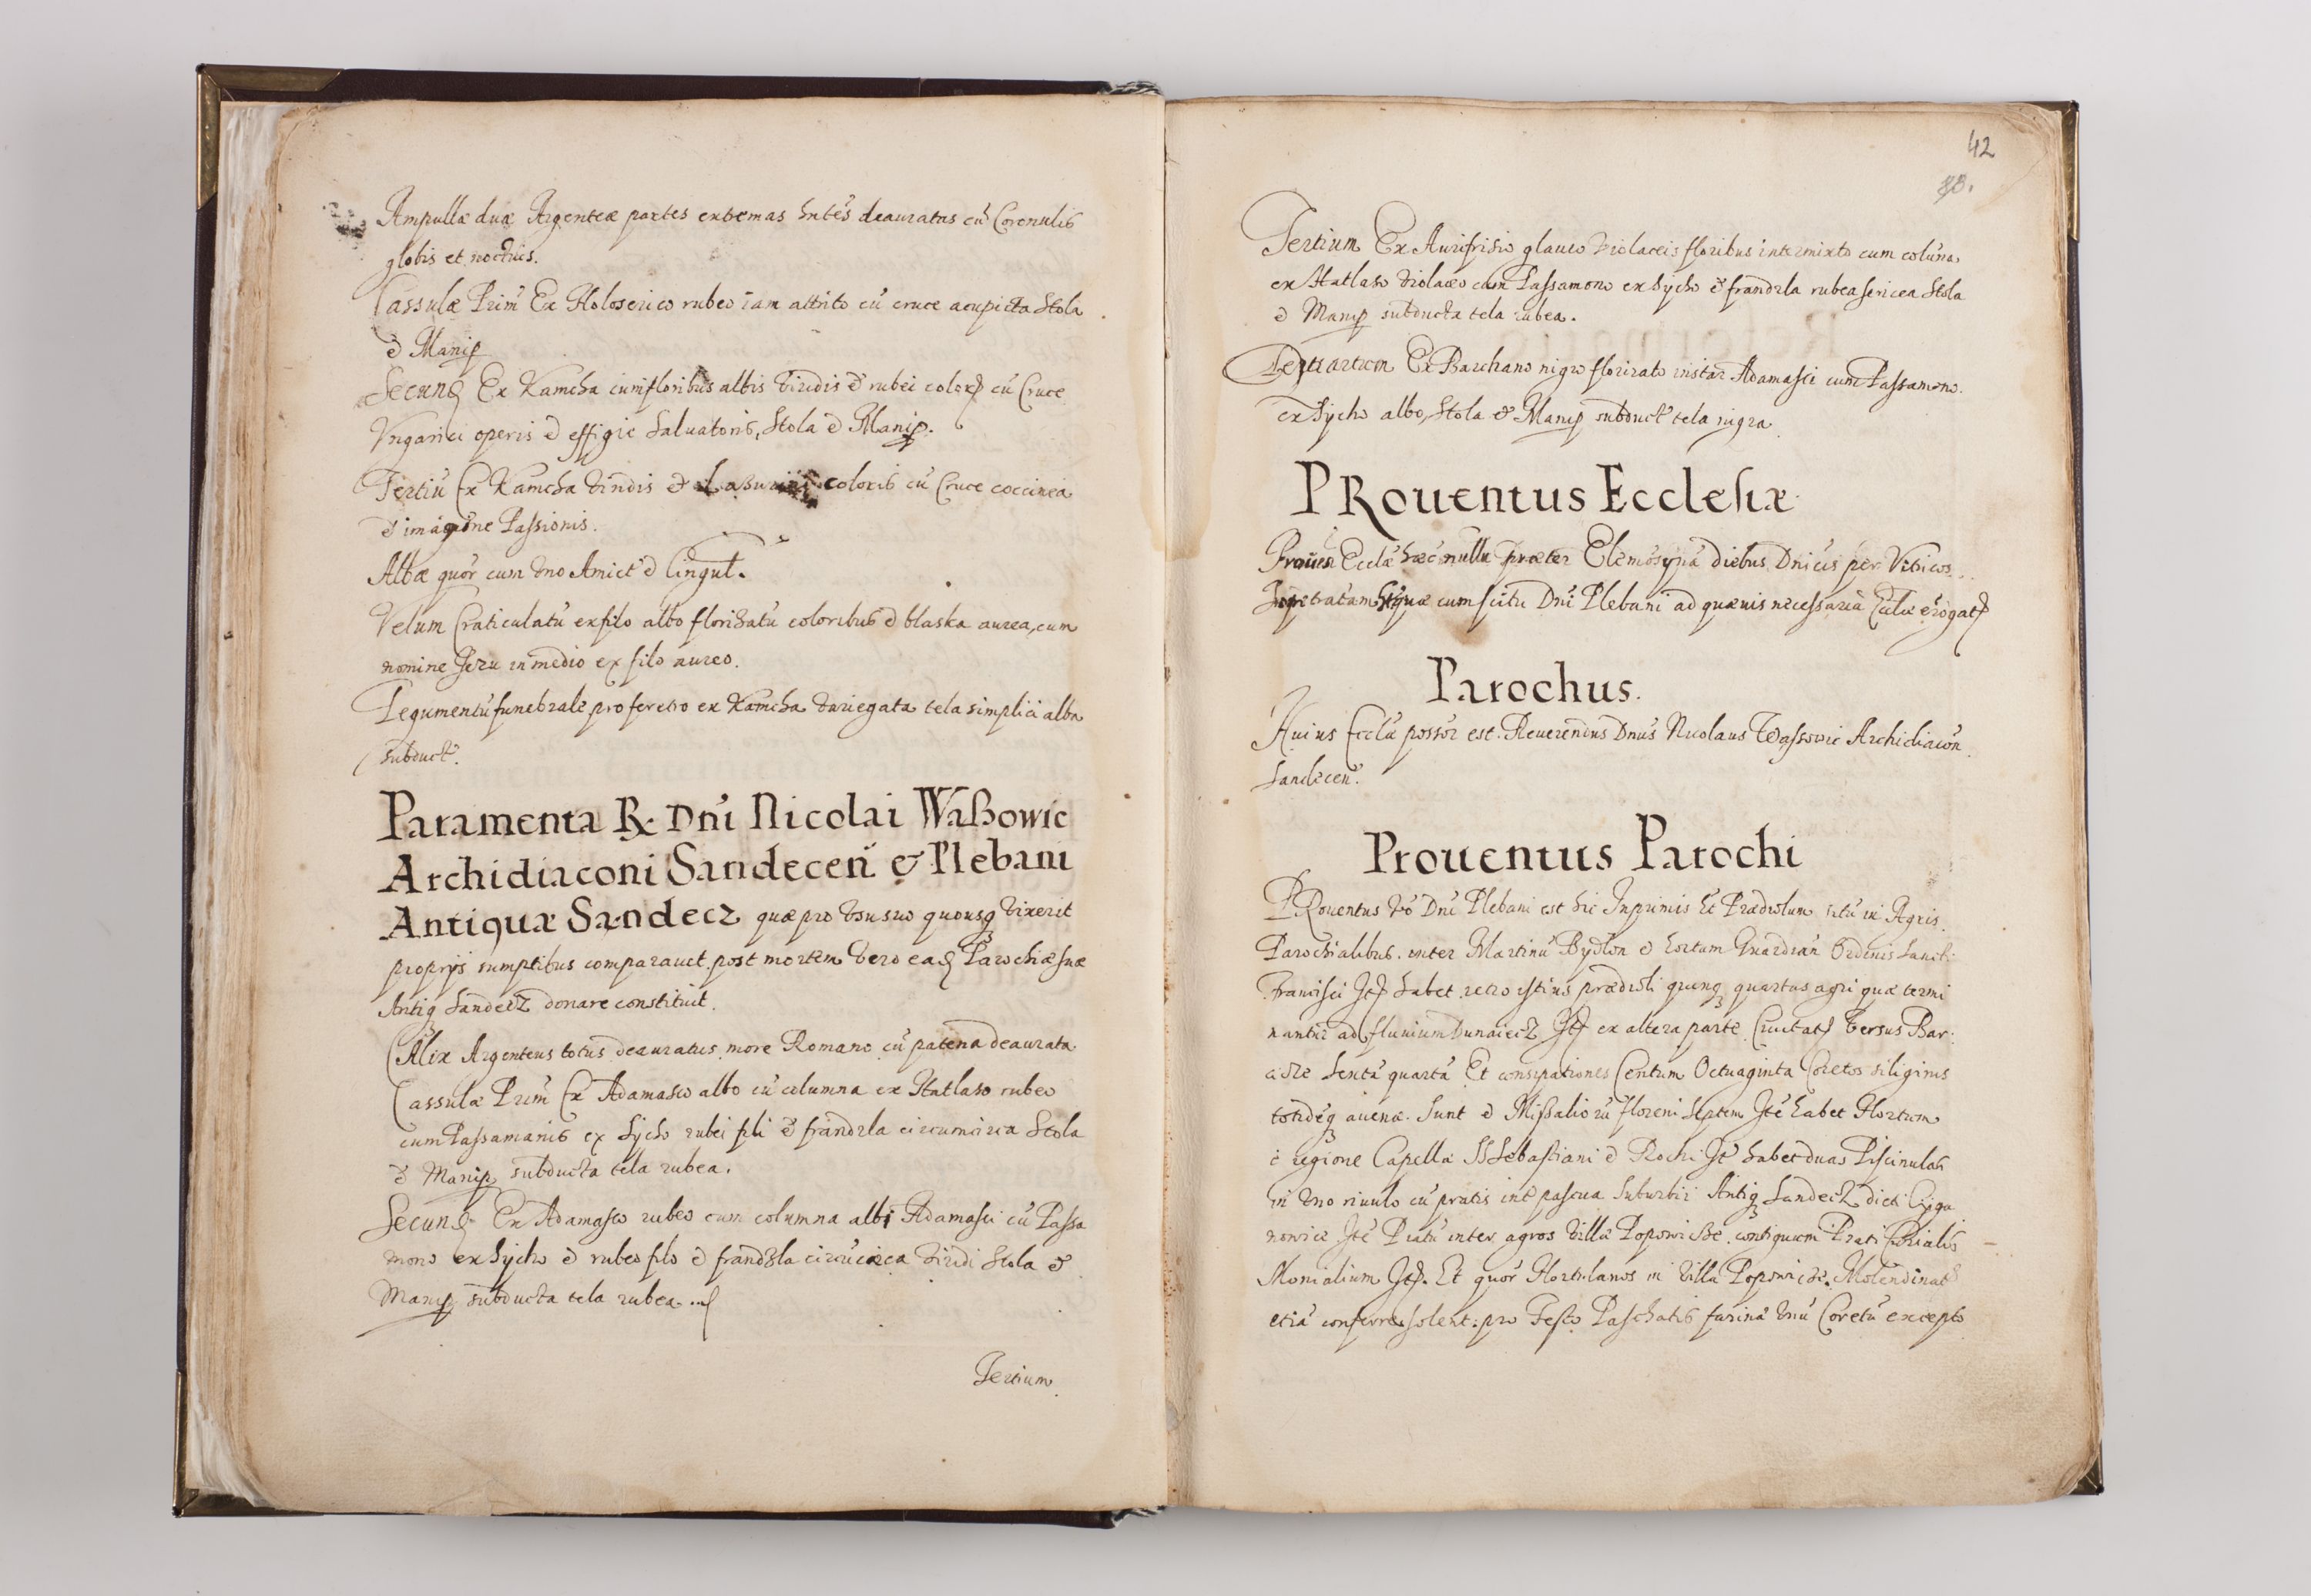 Ampullæ duæ Argenteæ partes extremas hñtes deauratas cũ Coronulis
globis et noctuis.
Cassulæ Primũ Ex Holoserico rubeo iam attrito cũ cruce acupicta Stola
& Manip
Secund Ex Kamcha cum floribus albis viridis & rubei color cũ Cruce
Vngarici operis & effigie Saluatoris, Stola & Manip.
Tertiũ Ex Kamcha viridis & coloris cũ Cruce coccinea
& imagine Passionis.
Albæ quor cum vno Amict & Cingul.
Velum Craticulatũ ex filo albo florisatũ coloribus & blaska aurea, cum
nomine Jesu in medio ex filo aureo.
Tegumentũ funebrale pro feretro ex Kamcha variegata tela simplici alba
subduct.
Paramenta R. Dni Nicolai Waßowic
Archidiaconi Sandecen & Plebani
Antiquæ Sandecz quæ pro vsu suo quousq vixerit
proprijs sumptibus comparauit. post mortem vero ead Parochiæ suæ
Antiq Sandecz donare constituit.
CAlix Argenteus totus deauratus more Romano cũ patena deaurata
Cassulæ Primũ Ex Adamasco albo cũ columna ex Hatlaso rubeo
cum Passamanis ex Sycho rubei fili & frandzla circumcirca Stola
& Manip subducta tela rubea.
Secund Ex Adamasco rubeo cum columna albi Adamasci cũ Passa
mono ex Sycho & rubeo filo & frandzla circũcirca viridi Stola &
Manip subducta tela rubea.
Tertium
42
Tertium Ex Aurifrisio glauco violaceis floribus intermixto cum colũna
ex Hatlaso violaceo cum Passamono ex Sycho & frandzla rubea sericea Stola
& Manip subducta tela rubea.
Quartum Ex Barchano nigro florizato instar Adamasci cum Passamono
ex Sycho albo, Stola & Manip subduct tela nigra
PRouentus Ecclesiæ
Prouen Ecclæ hæc nullũ præter Elemosynã diebus Dnicis per Vitricos
cum scitu Dni Plebani ad quæuis necessaria Ecclæ erogat
Parochus.
Huius Ecclæ possor est Reuerendus Dnus Nicolaus Wassowic Archidiacon
Sandecen.
Prouentus Parochi
PRouentus vo Dni Plebani est hic Inprimis Et Prædiolum sitũ in Agris
Parochialibus inter Martinũ Bydłon & hortum Guardian Ordinis Sancti
Francisci It habet retro istius prædioli quinq quartas agri quæ termi
nantur ad fluuium Dunaiecz It ex altera parte Ciuitat versus Bar:
cice Sextã quartã Et consipationes Centum Octuaginta Coretos siliginis
totideq auenæ. Sunt & Missaliorũ floreni Septem Ite habet Hortum
è regione Capellæ SS Sebastiani & Rochi Ite habet duas Piscinulas
in vno riuulo cũ pratis int pascua Suburbii Antiq Sandecz dicti Cyga
nowice Ite Pratũ inter agros villæ Popowice contiguum Prati
Monialium It. Et quor Hortulanos in villa Popowice. Molendinat
etiã conferre solent: pro Festo Paschatis farinæ vnũ Coretũ excepto